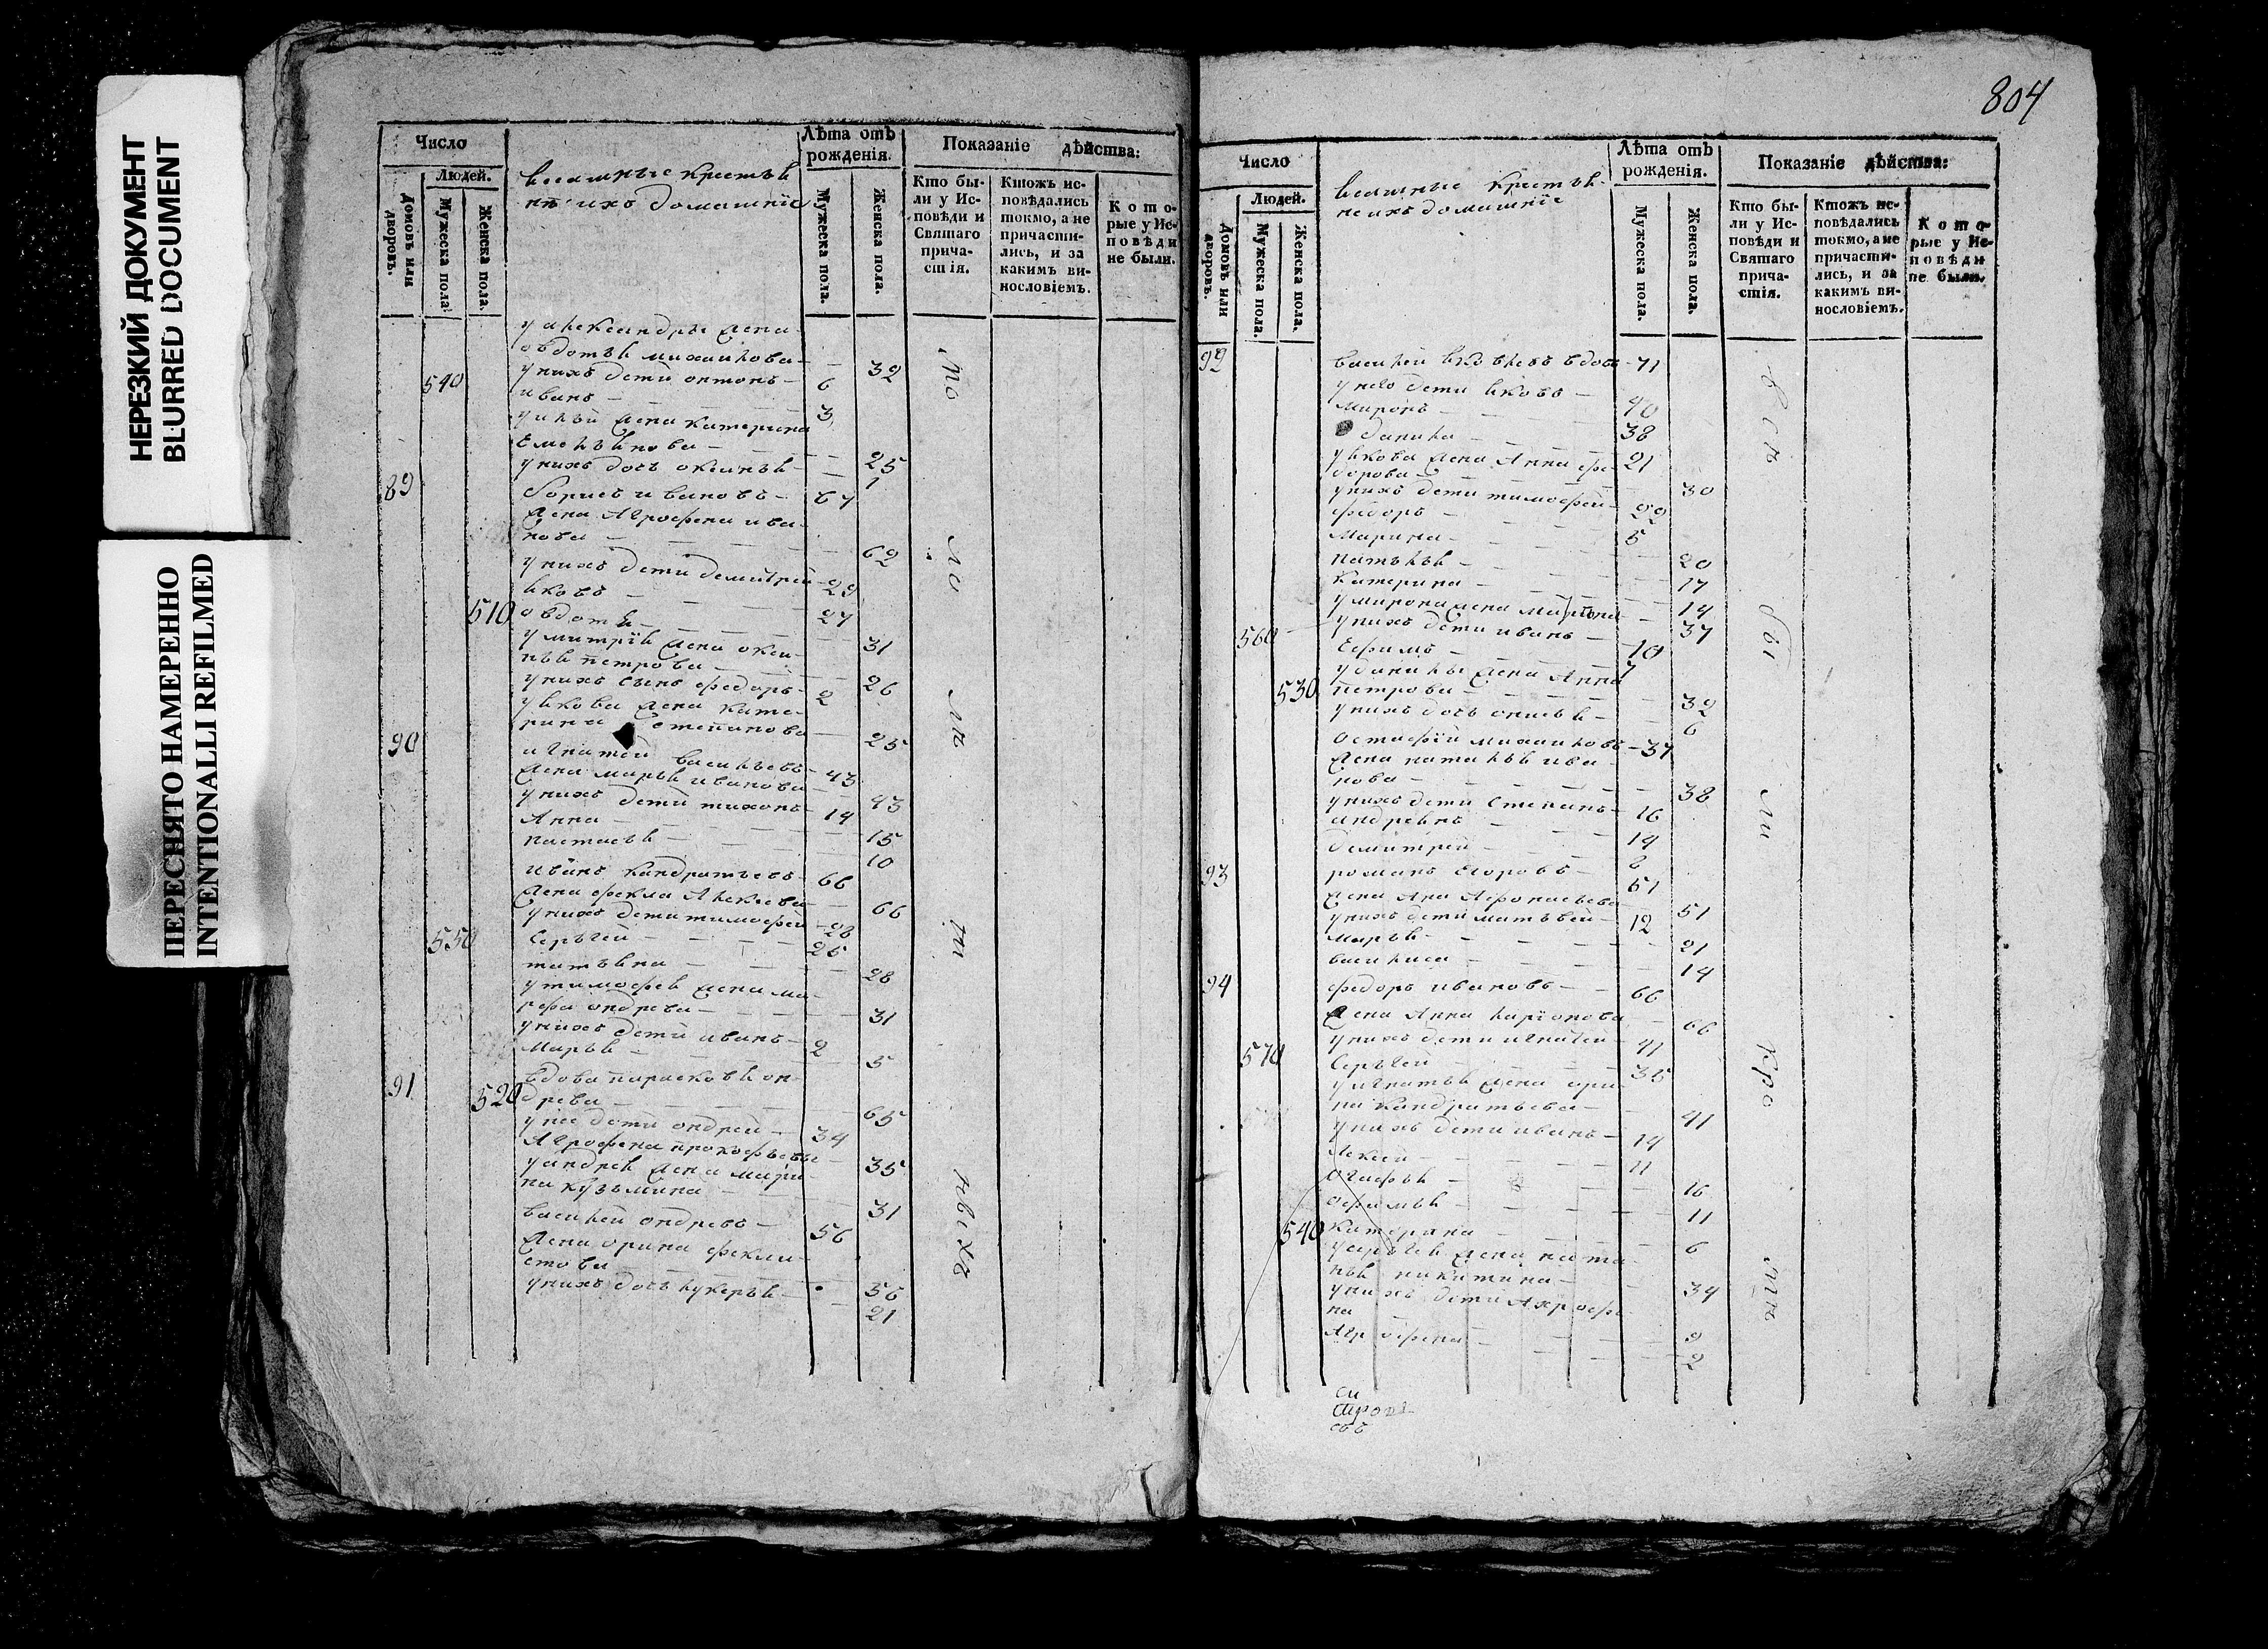 НЕРЕЗКИЙ ДОКУМЕНТ
BLURRED DOCUMENT
ПЕРЕСНЯТО НАМЕРЕННО
INTENTIONALLI REFILMED
Число
Людей.
Домовъ или дворовъ.
Мужеска пола.
Женска пола.
крестья
не ихъ домашнiе
Лѣта отъ рожденiя.
Мужеска пола.
Женска пола.
Показанiе дѣйства:
Кто бы-
ли у Ис-
повѣди и
Святаго
прича-
стiя.
Ктожъ ис-
повѣдались
токмо, а не
причасти-
лись, и за
какимъ ви-
нословiемъ.
Кото-
рые у Ис-
повѣди
не были.
у александры жена
овдотья михаилова 32
540 у нихъ дети онтонъ 6
иванъ 3
жена катерина
Емельянова 25
у нихъ дочь оксинья 1
89 борисъ ивановъ 67
жена Агрофена ива-
нова 62
у нихъ дети демитрей 29
яковъ 27
510 овдотья 31
у митрiя жена окси-
нья петрова 26
у нихъ сынъ федоръ 2
у якова жена кате-
рина Степанова 25
90 игнатей васильевъ 43
жена марья иванова 43
у нихъ дети тихонъ 14
Анна 15
настасья 10
иванъ кандратьевъ 66
жена фекла Алексева 66
у нихъ дети тимофей 28
550 Сергей 25
татьяна 28
у тимофея жена ма-
рфа ондрева 31
у нихъ дети иванъ 2
Марья 5
91 вдова парасковья он-
520 древа 65
у нее дети ондрей 34
Агрофена прокофьева 35
у андрея жена мари-
на кузьмина 31
василей ондревъ 56
жена орина фекли-
стова 56
у нихъ дочь лукерья 21
804
Число
Людей.
Домовъ или дворовъ.
Мужеска пола.
Женска пола.
крестья-
не ихъ домашнiе
Лѣта отъ рожденiя.
Мужеска пола.
Женска пола.
Показанiе дѣйства:
Кто бы-
ли у Ис-
повѣди и
Святаго
прича-
стiя.
Ктожъ ис-
повѣдались
токмо, а не
причасти-
лись, и за
какимъ ви-
нословiемъ.
Кото-
рые у Ис-
повѣди
не были.
92 василей яковлевъ вдовъ 71
у него дети яковъ 40
миронъ 38
данила 21
у якова жена Анна фе-
дорова 30
у нихъ дети тимофей 22
федоръ 5
Марина 20
наталья 17
катерина 14
у мирона жена 37
560 у нихъ дети иванъ 10
Ефимъ 7
у данилы жена Анна
530 петрова 32
у нихъ дочь онисья 6
остафiй михаиловъ 37
жена наталья ива-
нова 38
у нихъ дети Степанъ 16
андреянъ 14
демитрей 8
93 романъ Егоровъ 51
жена Ана Афонасьева 51
у нихъ дети матьвей 12
марья 21
василиса 14
94 федоръ ивановъ 66
жена Анна ларiонова 66
у нихъ дети игнатей 41
570 Сергей 35
у игнатья жена ори-
на кандратьева 41
у нихъ дети иванъ 14
Алексей 11
огафья 16
офимья 11
540 катерина 6
у сергея жена ната-
лья никитина 34
у нихъ дети Агрофе-
на 9
Агрофена 2